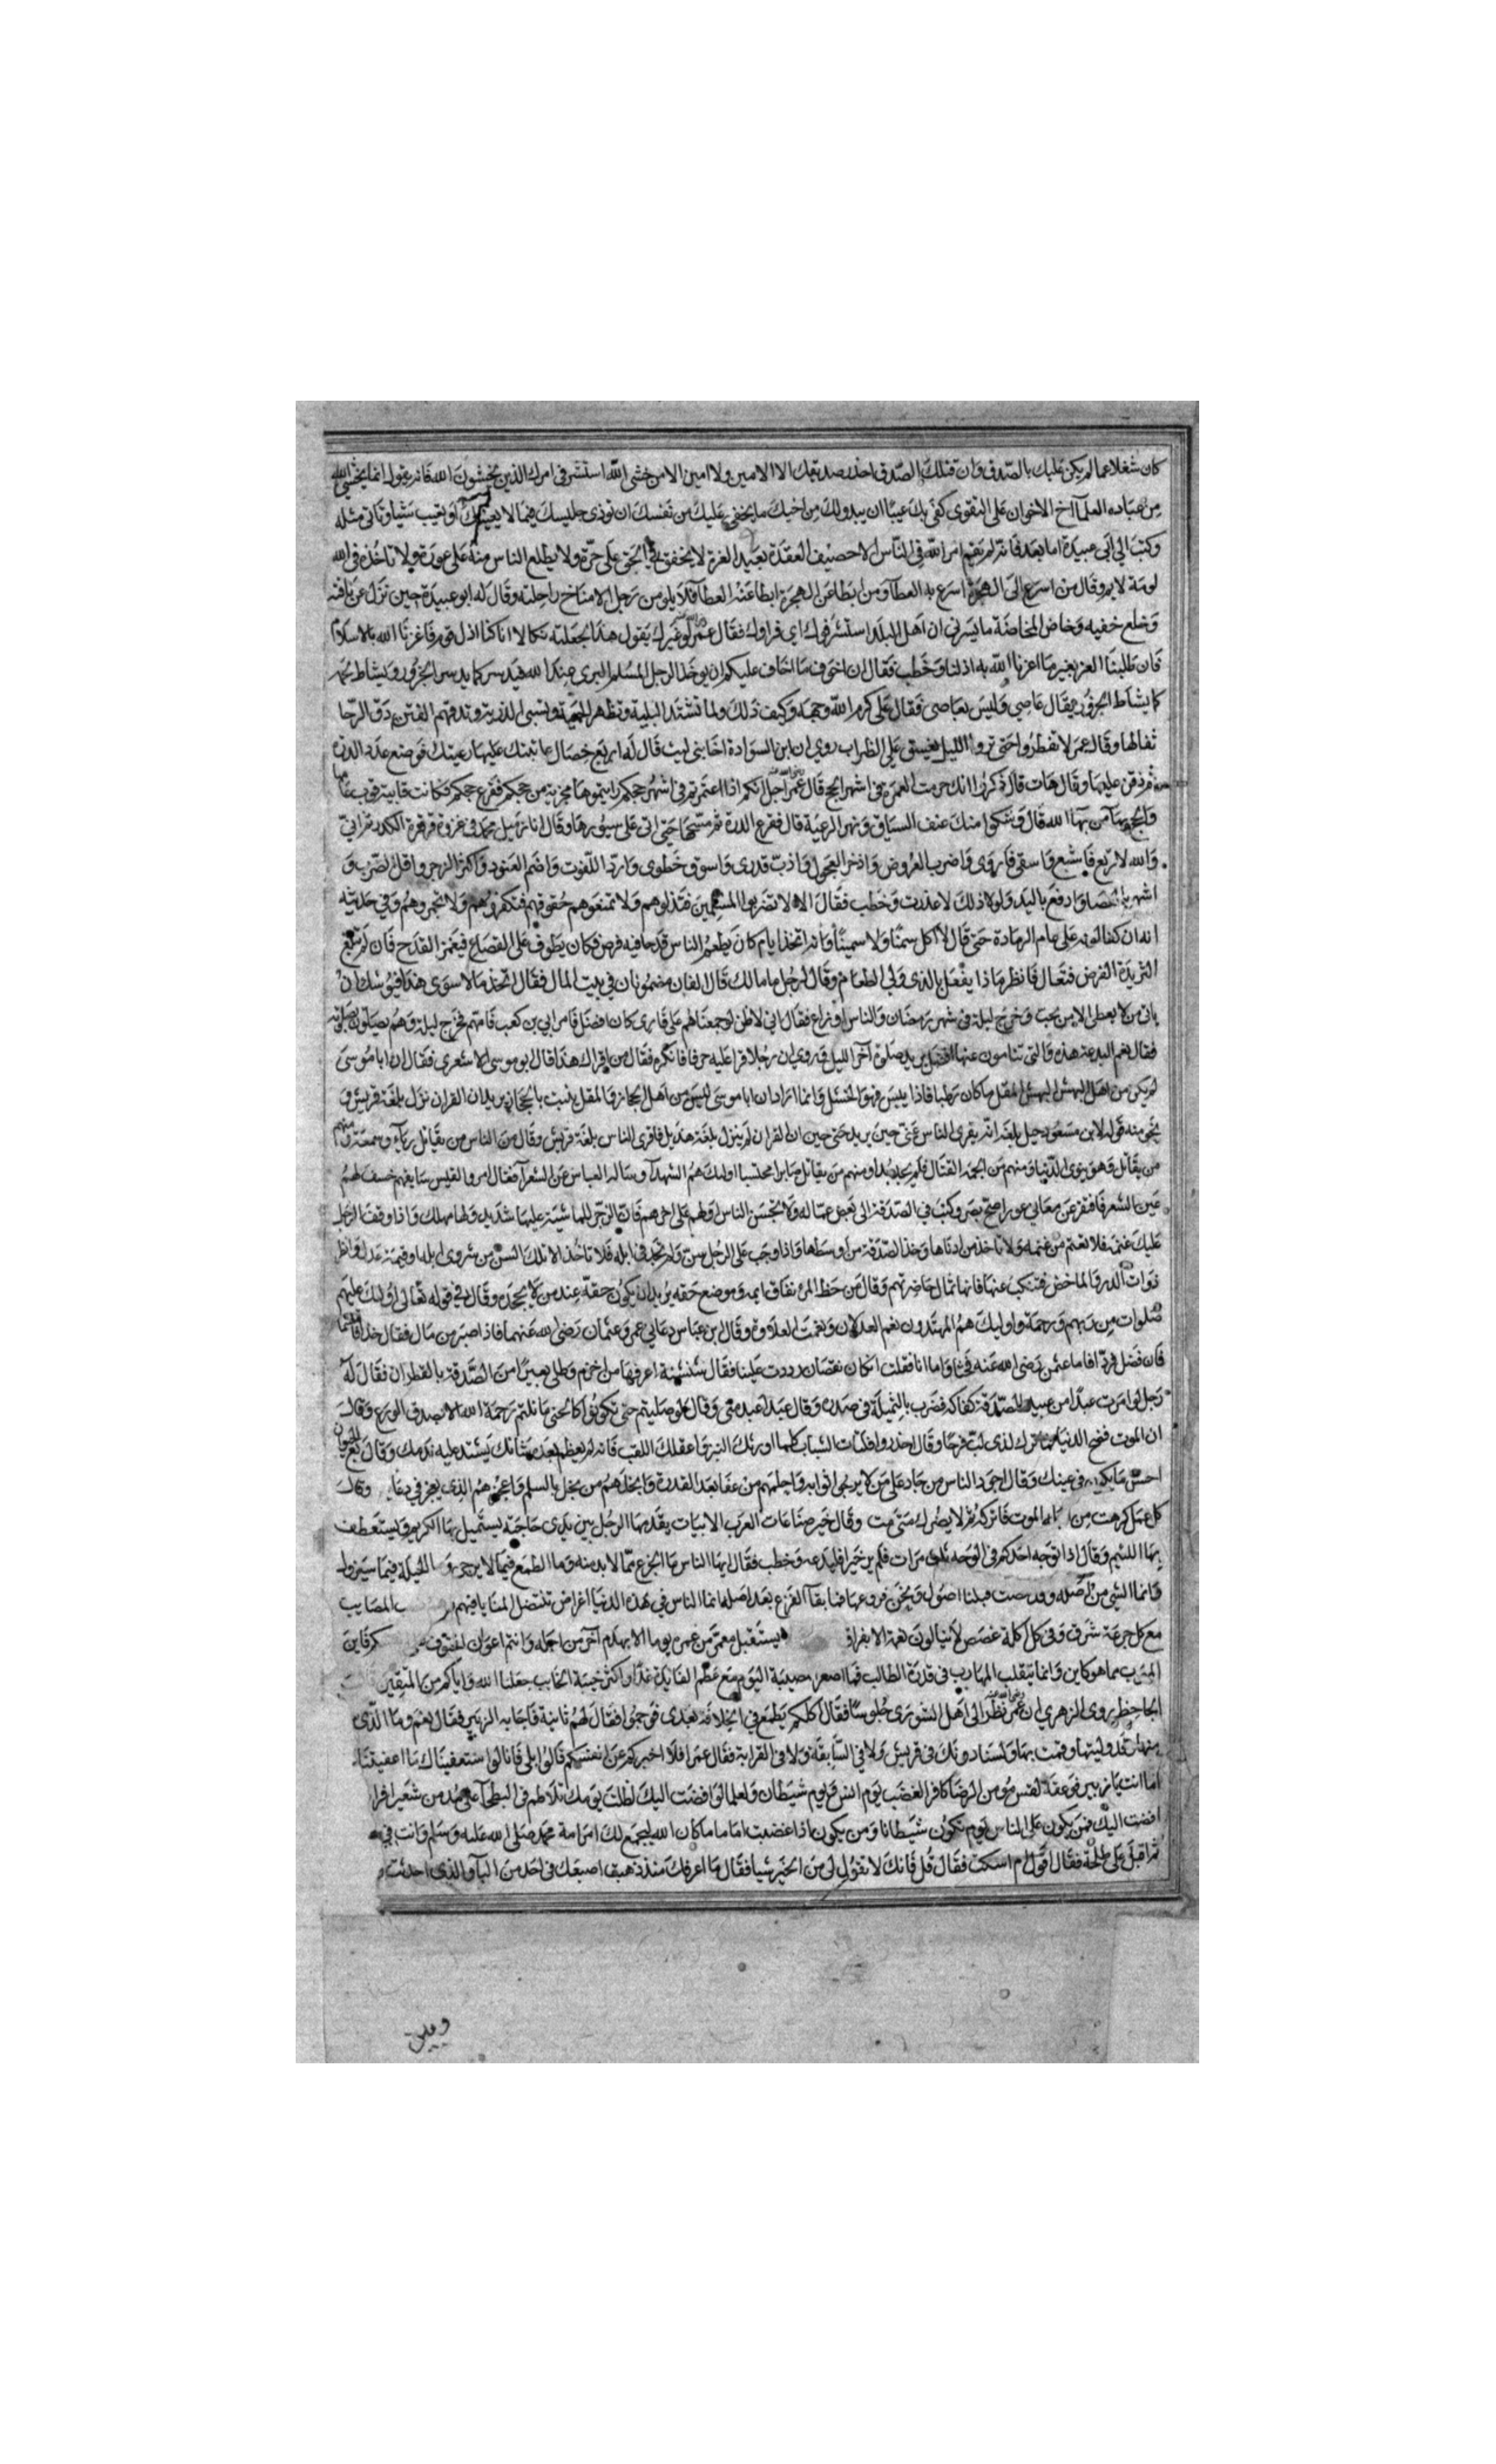 كان شغلا عما لم يكن عليك بالصدق وان قتلك الصدق احذر صديقك الا الامين ولا امين الا من خشى الله استشر في امرك الذين يخشون الله فانه يقول انما يخشى الله
من عباده العلمآ آخ الاخوان على التقوى كفى بك عيبا ان يبدو لك من اخيك ما يخفى عليك من نفسك ان توذى جليسك فيما لا يعنيك او تعيب شيا وتاتى مثله
وكتب الى ابى عبيدة اما بعد فانه لم يقم امر الله في الناس الا حصيف العقدة بعيد الغرة لا يخفق في الحق على جرة ولا يطلع الناس منه على عورة ولا تاخذه في الله
لومة لايم وقال من اسرع الى الهجرة اسرع به العطآ ومن ابطا عن الهجرة ابطا عنه العطآ فلا يلومن رجل الا مناخ راحلته وقال له ابو عبيدة حين نزل عن ناقته
وخلع خفيه وخاض المخاضة ما يسرنى ان اهل البلد استشرفوك اي فراوك فقال عمر لو غيرك يقول هذا لجعلته نكالا انا كنا اذل قوم فاعزنا الله بالاسلام
فان طلبنا العز بغير ما اعزنا الله به اذلنا وخطب فقال ان اخوف ما اخاف عليكم ان يوخذ الرجل المسلم البرى عند الله فيدسر كما يدسر الجزور ويشاط لحمه
كما يشاط الجزور يقال عاصى وليس بعاصى فقال على كرم الله وجهه وكيف ذلك ولما تشتد البلية وتظهر الحمية وتسبى الذرية وتدقهم الفتن دق الرحا
ثفالها وقال عمر لا تفطروا حتى تروا الليل يغسق على الظراب روي ان ابن السوادة اخا بنى ليث قال له اربع خصال عاتبتك عليها رعيتك فوضع عود الدرة
ثم ذقن عليها وقال هات قال ذكروا انك حرمت العمرة في اشهر الحج قال عمر اجل انكم اذا اعتمرتم في اشهر حجكم رايتموها مجزية من حجكم فقرع حجكم فكانت قايبة قوب عامها
والحج بهآ من بهآ الله قال وشكوا منك عنف السياق ونهر الرعية قال فقرع الدرة ثم مسحها حتى اتى على سيورها وقال انا زميل محمد في غزوة قرقرة الكدر ثم اني
والله لا رتع فاشبع واسقى فاروى واضرب العروض وازجر العجول واذب قدرى واسوق خطوى وارد اللفوت واضم العنود واكثر الزجر واقل الضرب و
اشهر بالعصا وادفع باليد ولولا ذلك لاغدرت وخطب فقال الا لا تضربوا المسلمين فتذلوهم ولا تمنعوهم حقوقهم فتكفروهم ولا تجمروهم وفي حديثه
انه ان كفالوته على عام الرمادة حتى قال لا آكل سمنا ولا سمينا وانه اتخذ ايام كان يطعم الناس قدحا فيه فرض فكان يطوف على القصاع فيغمز القدح فان لم تبلغ
الثريدة الفرض فتعال فانظر ماذا يفعل بالذى ولى الطعام وقال لرجل ما مالك قال الفان مضمونان في بيت المال فقال اتخذ مالا سوى هذا فيوشك ان
ياتى من لا يعطى الا من يحب وخرج ليلة في شهر رمضان والناس اوزاع فقال اني لاظن لو جمعناهم على قارى كان افضل فامر ابي بن كعب فامهم ثم خرج ليلة وهم يصلون بصلوته
فقال نعم البدعة هذه والتي تنامون عنها افضل يريد صلوة آخر الليل وروي ان رجلا قرا عليه حرفا فانكره فقال من اقراك هذا قال ابو موسى الاشعري فقال ان ابا موسى
لم يكن من اهل البهش البهش المقل ما كان رطبا فاذا يبس فهو الخشل وانما اراد ان ابا موسى ليس من اهل الحجاز والمقل ينبت بالحجاز يريد ان القران نزل بلغة قريش و
نحو منه قوله لابن مسعود حين بلغه انه يقرى الناس عتى حين يريد حتى حين ان القران لم ينزل بلغة هذيل فاقرى الناس بلغة قريش وقال من الناس من يقاتل ريآء وسمعة ومنهم
من يقاتل وهو ينوى الدنيا ومنهم من الجمه القتال فلم يجد بدا ومنهم من يقاتل صابرا محتسبا اولئك هم الشهدآ وساله العباس عن الشعرآ فقال امرو القيس سابقهم خسف لهم
عين الشعر فافتقر عن معانى عور اصح بصر وكتب في الصدقة الى بعض عماله ولا تحبس الناس اولهم على اخرهم فان الرجن للماشية عليها شديد ولها مهلك واذا وقف الرجل
عليك غنمه فلا تعتم من غنمه ولا تاخذ من ادناها وخذ الصدقة من اوسطها واذا وجب على الرجل سن ولم تجد في ابله فلا تاخذ الا تلك السن من شروى ابله او قيمة عدل وانظر
ذوات الدر والماخض فتنكب عنها فانها ثمال حاضرتهم وقال من حظ المرء نفاق ايمه وموضع حقه يريد ان يكون حقه عند من لا يجحده وقال في قوله تعالى اوليك عليهم
صلوات من ربهم ورحمة واوليك هم المهتدون نعم العدلان ونعمت العلاوة وقال بن عباس دعاني عمر وعثمان رضى الله عنهما فاذا صبر من مال فقال خذا فاقسما
فان فضل فردا فاما عثمن رضى الله عنه فحثا واما انا فقلت ان كان نقصان رددت علينا فقال شنشنة اعرفها من اخزم وطلى بعيرا من الصدقة بالقطران فقال له
رجل لو امرت عبدا من عبيد الصدقة كفاكه فضرب بالثميلة في صدره وقال عبدا عبد منى وقال لو صليتم حتى تكونوا كالحنى ما نلتم رحمة الله الا بصدق الورع وقال
ان الموت فضح الدنيا فما ترك لذى لب فرحا وقال احذروا فلتات الشباب كلما اورثك النبز واعقلك اللقب فانه ان يعظم بعد شانك يشتد عليه ندمك وقال
احسن ما يكون في عينك وقال اجود الناس من جاد على من لا يرجو ثوابه واحلمهم من عفا بعد القدرة وابخلهم من بخل بالسلم واعجزهم الذى يعجز في دعايه وقال
كل عمل كرهت من اجله الموت فاتركه ثم لا يضرك متى مت وقال خير صناعات العرب الابيات يقدمها الرجل بين يدى حاجته يستميل بها الكريم ويستعطف
بها اللئيم وقال اذا توجه احدكم في الوجه ثلث مرات فلم ير خيرا فليدعه وخطب فقال ايها الناس ما الجزع مما لا بد منه وما الطمع فيما لا يرجى وما الحيلة فيما سيزول
وانما الشى من اصله وقد مضت قبلنا اصول ونحن فروعها فما بقآ الفرع بعد اصله انما الناس في هذه الدنيا اغراض تنتضل المنايا فيهم المصايب
مع كل جرعة شرق وفي كل اكلة غصص لا ينالون نعمة الا بفراق يستقبل معمر من عمره يوما الا بهدم آخر من اجله وانتم اعوان الحتوف فاين
المهرب مما هو كاين وانما يتقلب الهارب في قدرة الطالب فما اصغر مصيبة اليوم مع عظم الفايدة غدا واكثر خيبة الخايب جعلنا الله واياكم من المتقين
الجاحظ روى الزهري ان عمر نظر الى اهل الشورى جلوسا فقال اكلكم يطمع في الخلافة بعدى فوجموا فقال لهم ثانية فاجابه الزبير فقال نعم وما الذى
يبعدنا منها وقد وليتها وقمت بها ولسنا دونك في قريش ولا في السابقة ولا في القرابة فقال عمر افلا اخبركم عن انفسكم قالوا بلى فانا لو استعفيناك ما اعفيتنا
اما انت يا زبير فوعقة لقس مومن الرضا كافر الغضب يوم انس ويوم شيطان ولعلها لو افضت اليك لظلت يومك تلاطم في البطحآ على مد من شعير افرا
افضت اليك فمن يكون على الناس يوم تكون شيطانا ومن يكون اذا غضبت اماما ما كان الله ليجمع لك امر امة محمد صلى الله عليه وسلم وانت في
ثم اقبل على طلحة فقال اقول ام اسكت فقال قل فانك لا تقول لى من الخير شيا فقال ما اعرفك منذ ذهبت اصبعك في احد من البآو الذى احدثت